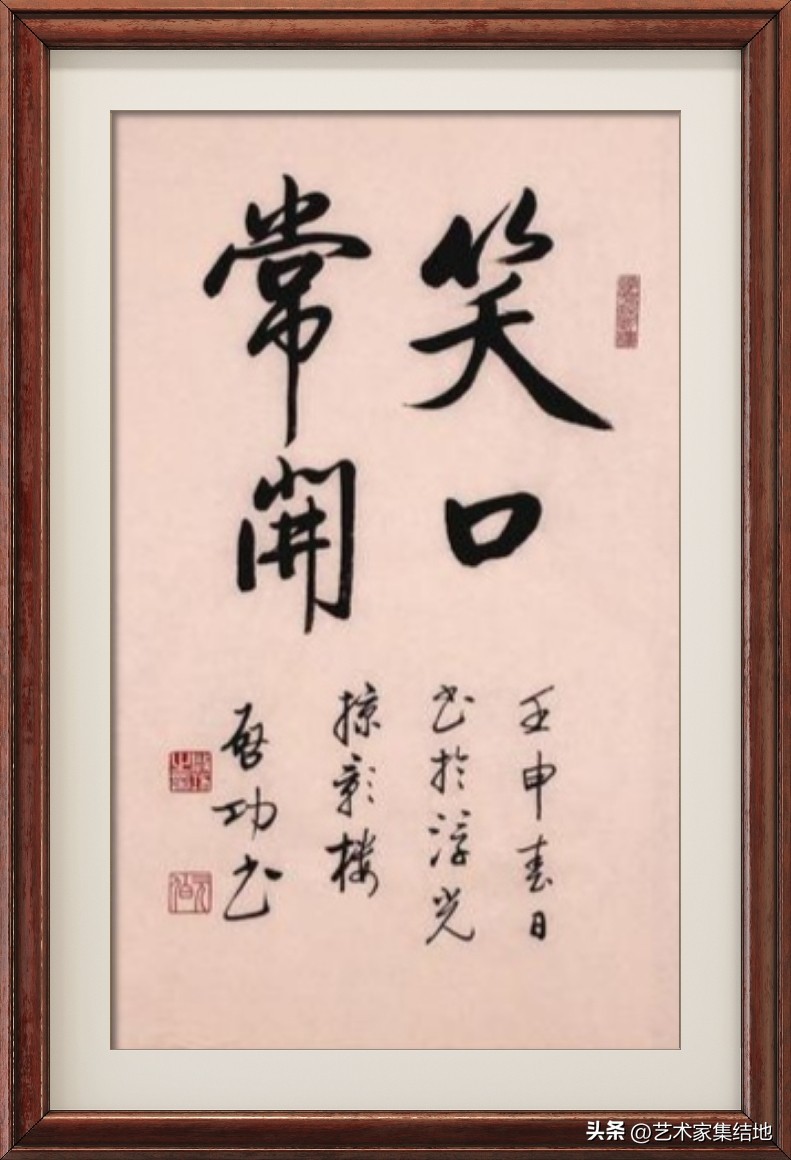 笑口
常開
壬申春日
书於浮光
掠影楼
啓功书
头条 @艺术家集结地